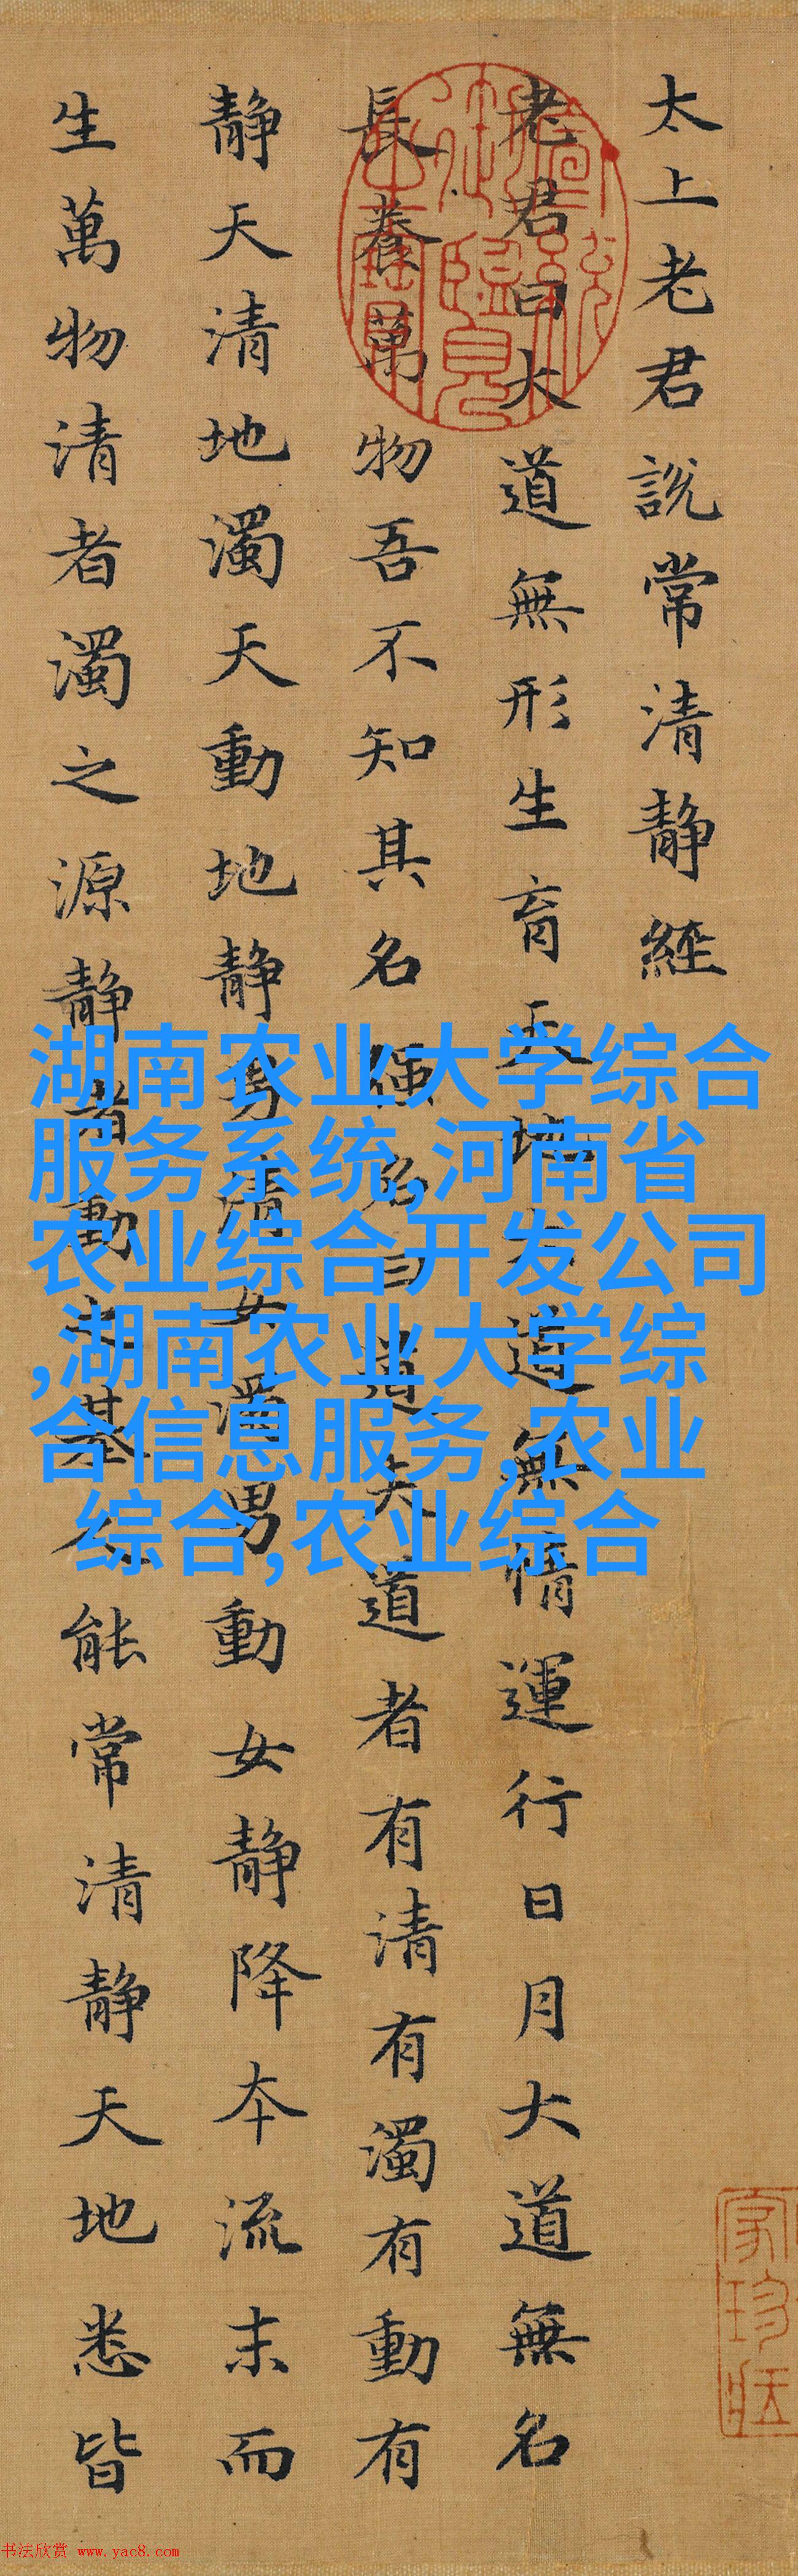 太上老君說常清靜經
老君曰大道無形生育天地大道無情運行日月大道無名
長養萬物吾不知其名強名曰道夫道者有清有濁有動有
靜天清地濁天動地靜男清女濁男動女靜降夲流末而
生萬物清者濁之源靜者動之基人能常清靜天地悉皆
湖南农业大学综合
服务系统,河南省
农业综合开发公司
,湖南农业大学综
合信息服务,农业
综合,农业综合
书法欣赏 www.yac8.com